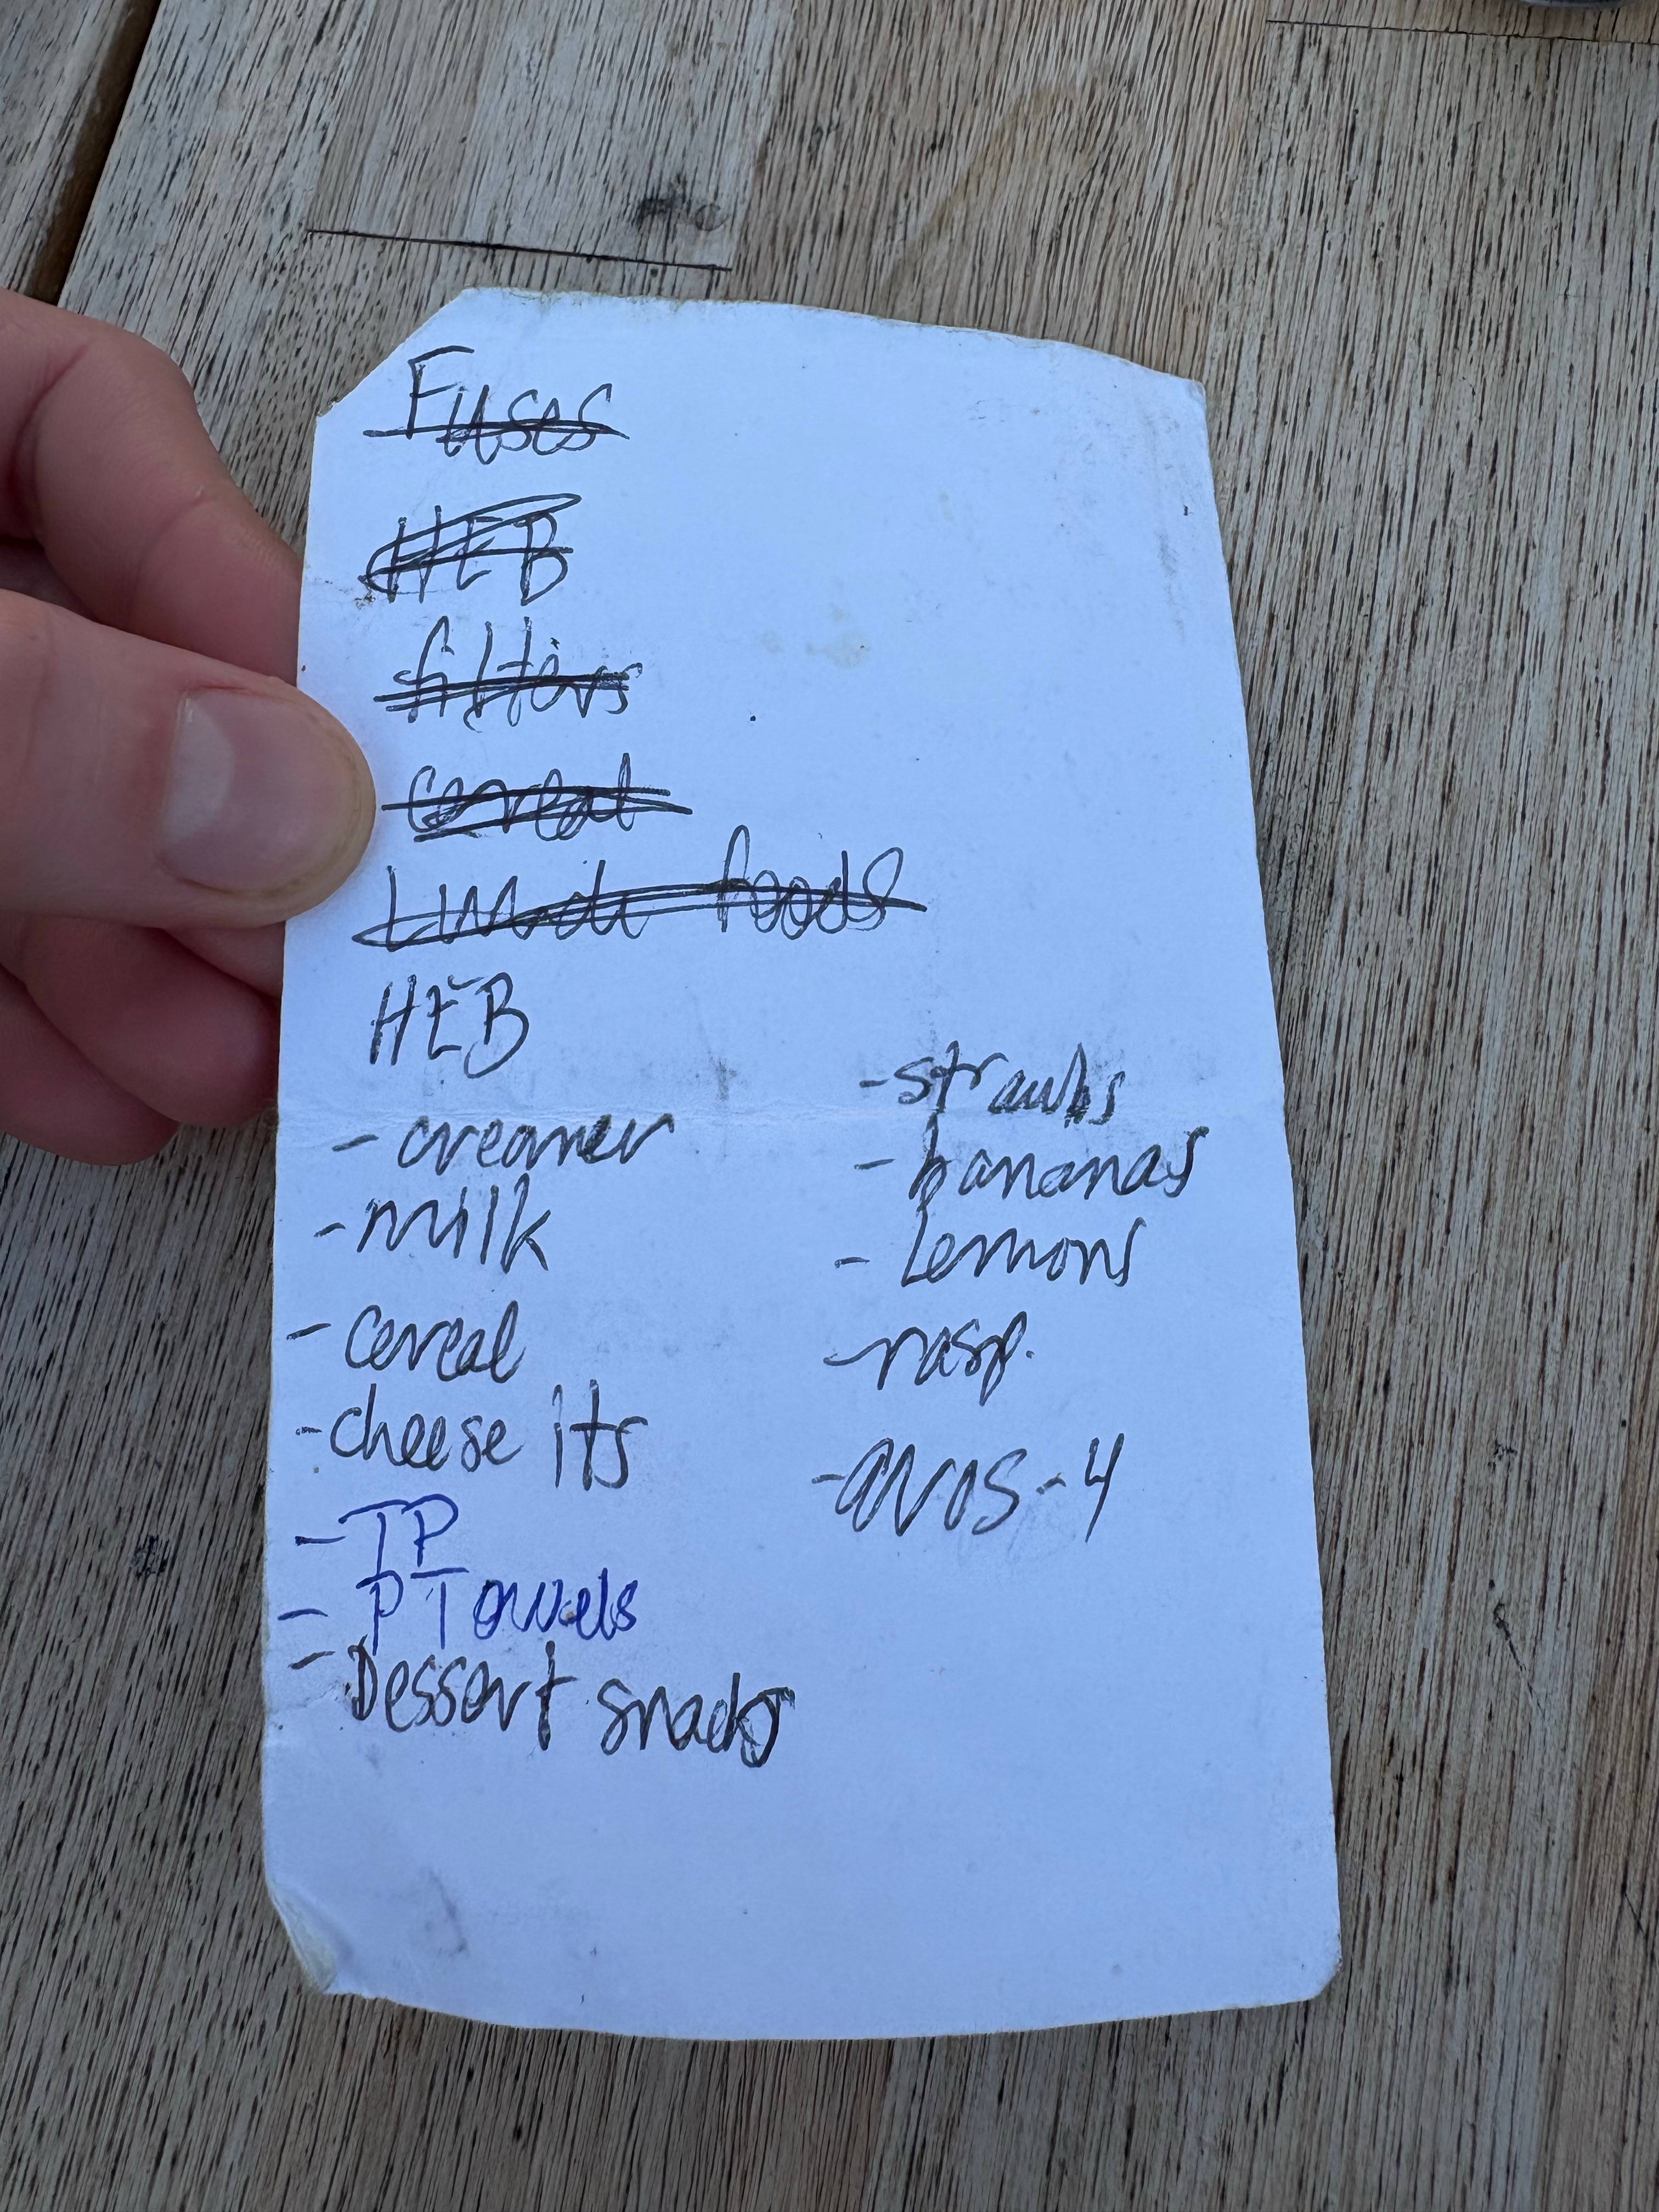 Fuses
HEB
filters
cereal
Lunch foods
HEB
- creamer
- milk
- cereal
- cheese its
- TP
- P Towels
- Dessert snacks
- strawbs
- bananas
- Lemons
- rasp.
- avos - 4